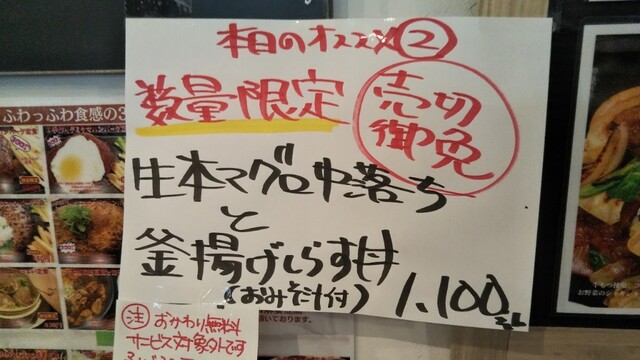 本日のオススメ②
数量限定
売切御免
生本マグロ中落ち
と
釜揚げしらす丼
(おみそ汁付)
1,100
ふわっふわ食感の3
注 おかわり無料
サービス対象外です